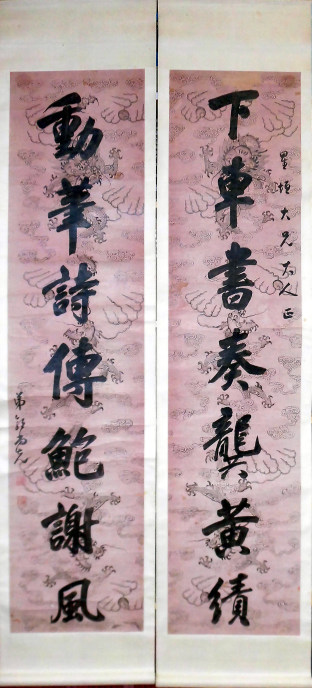 星垣大兄大人正
下車書奏龔黃績
動筆詩傳鮑謝風
弟郭尚先